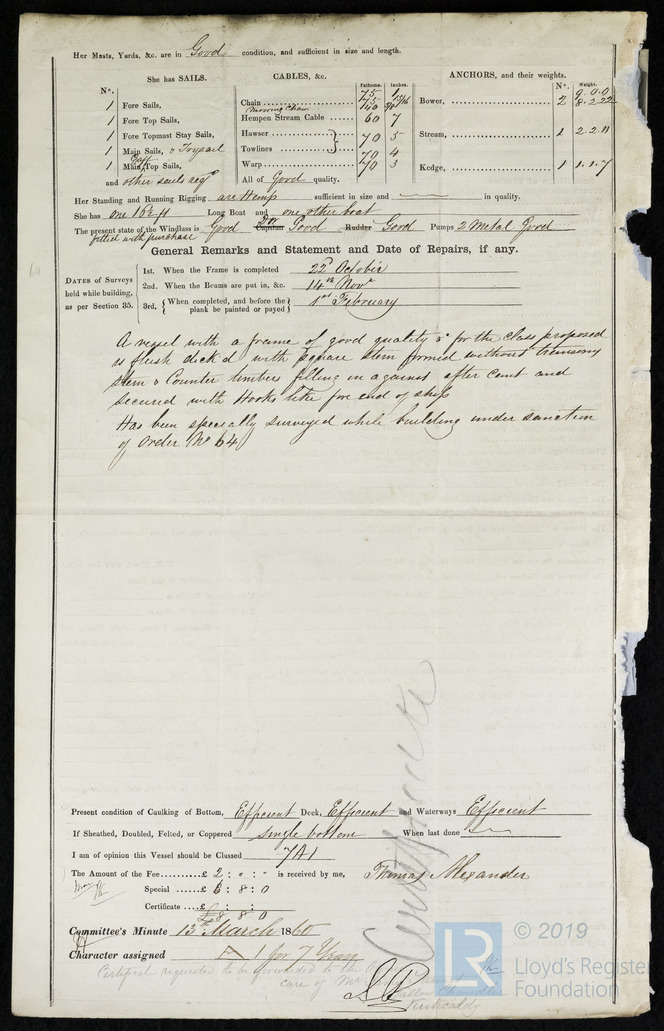 Her Masts, Yards, &c. are in Good condition, and sufficient in size and length.
She has SAILS.
N°.
1 Fore Sails,
1 Fore Top Sails,
1 Fore Topmast Stay Sails,
1 Main Sails, & Trysail
1 Main Gaff Top Sails,
and other sails reqd
CABLES, &c. Fathoms. Inches.
Chain 75 1
75 15/16
Mooring Chain 140
Hempen Stream Cable 60 7
Hawser 70 5
Towlines 70 4
Warp 70 3
All of Good quality.
ANCHORS, and their weights. N°. Weight.
Bower, 2 9.0.0
8.2.22
Stream, 1 2.2.11
Kedge, 1 1.1.7
Her Standing and Running Rigging are Hemp sufficient in size and in quality.
She has one 16½ ft Long Boat and one other boat
The present state of the Windlass is Good Capstan Good Rudder Good Pumps 2 Metal Good
fitted with purchase
General Remarks and Statement and Date of Repairs, if any.
DATES of Surveys held while building, as per Section 35.
1st. When the Frame is completed 22d October
2nd. When the Beams are put in, &c. 14th Novr
3rd. { When completed, and before the plank be painted or payed } 1st February
A vessel with a frame of good quality & for the class proposed
is flush deck'd with square stern formed without transoms
stern & Counter timbers filling in against after cant and
secured with Hooks like fore end of ship
Has been specially surveyed while building under sanction
of Order No 64
Certificate
Present condition of Caulking of Bottom, Efficient Deck, Efficient and Waterways Efficient
If Sheathed, Doubled, Felted, or Coppered single bottom When last done
I am of opinion this Vessel should be Classed 7A1
The Amount of the Fee £ 2 : " : " is received by me, Thomas Alexander
Special £ 6 : 8 : 0
Certificate £ : :
£8 8 0
Committee's Minute 13th March 1860
Character assigned A 1 for 7 Years
Certificate requested to be forwarded to the
care of Mr
Kirkcaldy
LR © 2019
Lloyd's Register
Foundation